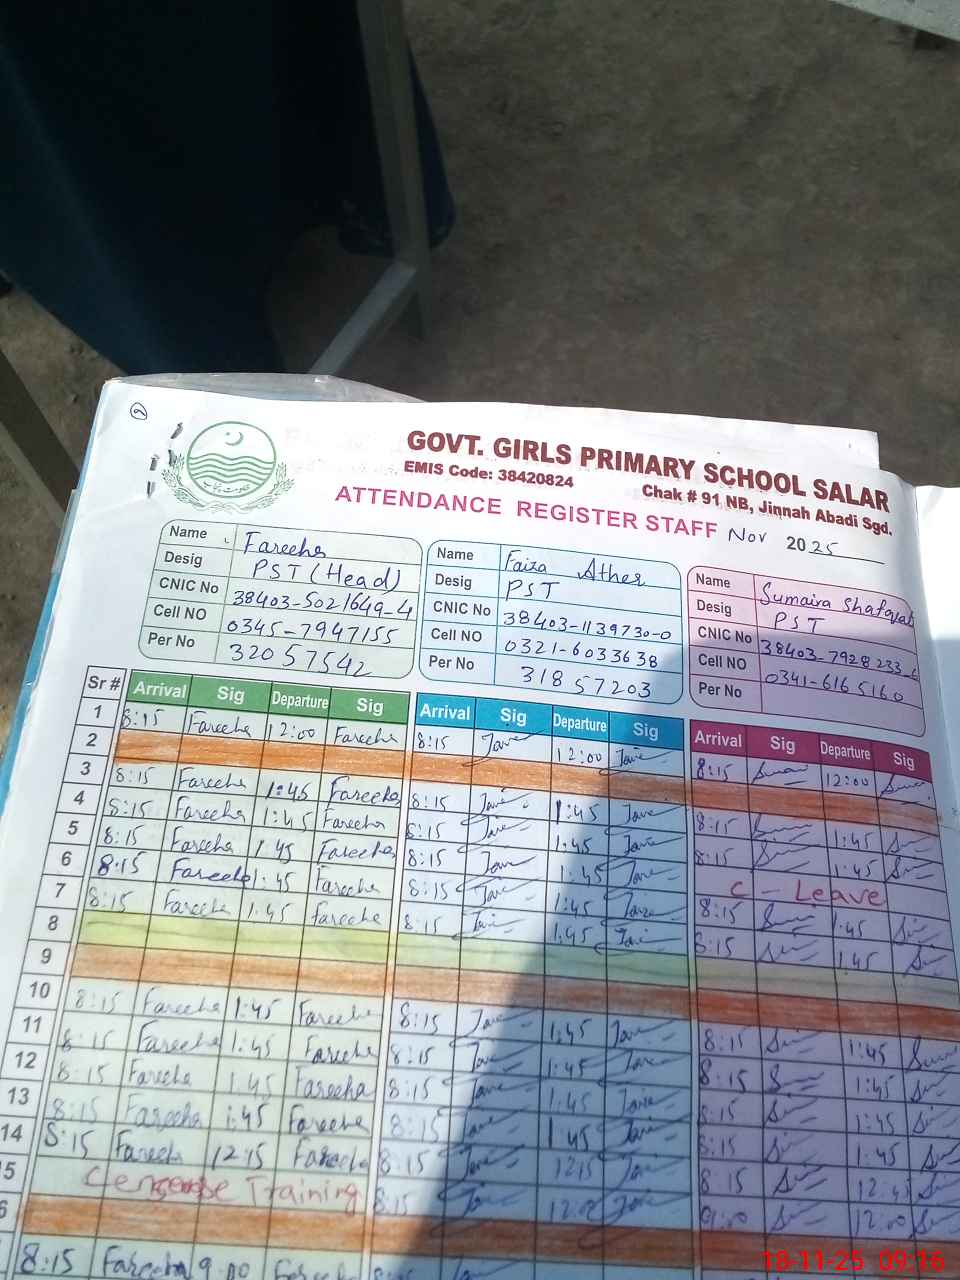 GOVT. GIRLS PRIMARY SCHOOL SALAR
EMIS Code: 38420824
Chak # 91 NB, Jinnah Abadi Sgd.
ATTENDANCE REGISTER STAFF Nov 2025
Name Fareeha
Desig PST (Head)
CNIC No 38403-5021649-4
Cell NO 0345-7947155
Per No 32057542
Name Faiza Ather
Desig PST
CNIC No 38403-1139730-0
Cell NO 0321-6033638
Per No 31857203
Name Sumaira Shafqat
Desig PST
CNIC No 38403-7928233-6
Cell NO 0341-6165160
Per No
Sr # Arrival Sig Departure Sig Arrival Sig Departure Sig Arrival Sig Departure Sig
1 8:15 Fareeha 12:00 Fareeha 8:15 12:00 8:15 12:00
2
3 8:15 Fareeha 1:45 Fareeha 8:15 1:45 8:15 1:45
4 8:15 Fareeha 1:45 Fareeha 8:15 1:45 8:15 1:45
5 8:15 Fareeha 1:45 Fareeha 8:15 1:45 C - Leave
6 8:15 Fareeha 1:45 Fareeha 8:15 1:45 8:15 1:45
7 8:15 Fareeha 1:45 Fareeha 8:15 1:45 8:15 1:45
8
9
10 8:15 Fareeha 1:45 Fareeha 8:15 1:45 8:15 1:45
11 8:15 Fareeha 1:45 Fareeha 8:15 1:45 8:15 1:45
12 8:15 Fareeha 1:45 Fareeha 8:15 1:45 8:15 1:45
13 8:15 Fareeha 1:45 Fareeha 8:15 1:45 8:15 1:45
14 8:15 Fareeha 12:15 Fareeha 8:15 12:15 8:15 12:45
5 Training 8:15 12:00 9:00 12:00
6
8:15 Fareeha 9:00 Fareeha 8:15
18-11-25 09:16